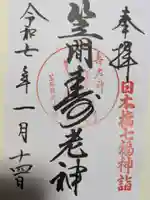 奉拝
日本橋七福神詣
寿老神
笠間寿老神
令和七年一月十四日